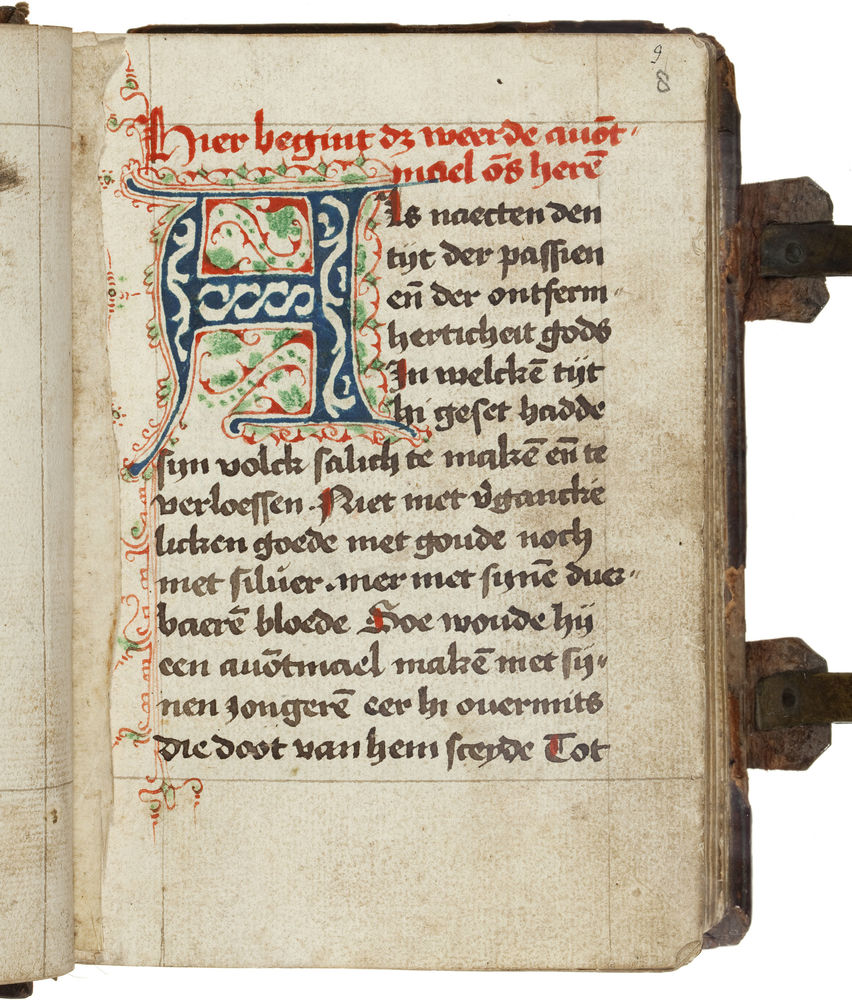 9
8
Hier begint dz weerde auōt-
mael ōs herē
Als naecten den
tyt der passien
en̄ der ontferm-
herticheit gods
In welckē tijt
hi geset hadde
sijn volck salich te makē en̄ te
verloessen. Niet met v̄gancke
licken goede met goude noch
met siluer. mer met sijnē duer-
baerē bloede Soe woude hij
een auōtmael makē met sij-
nen jongerē eer hi ouermits
die doot van hem sceyde Tot